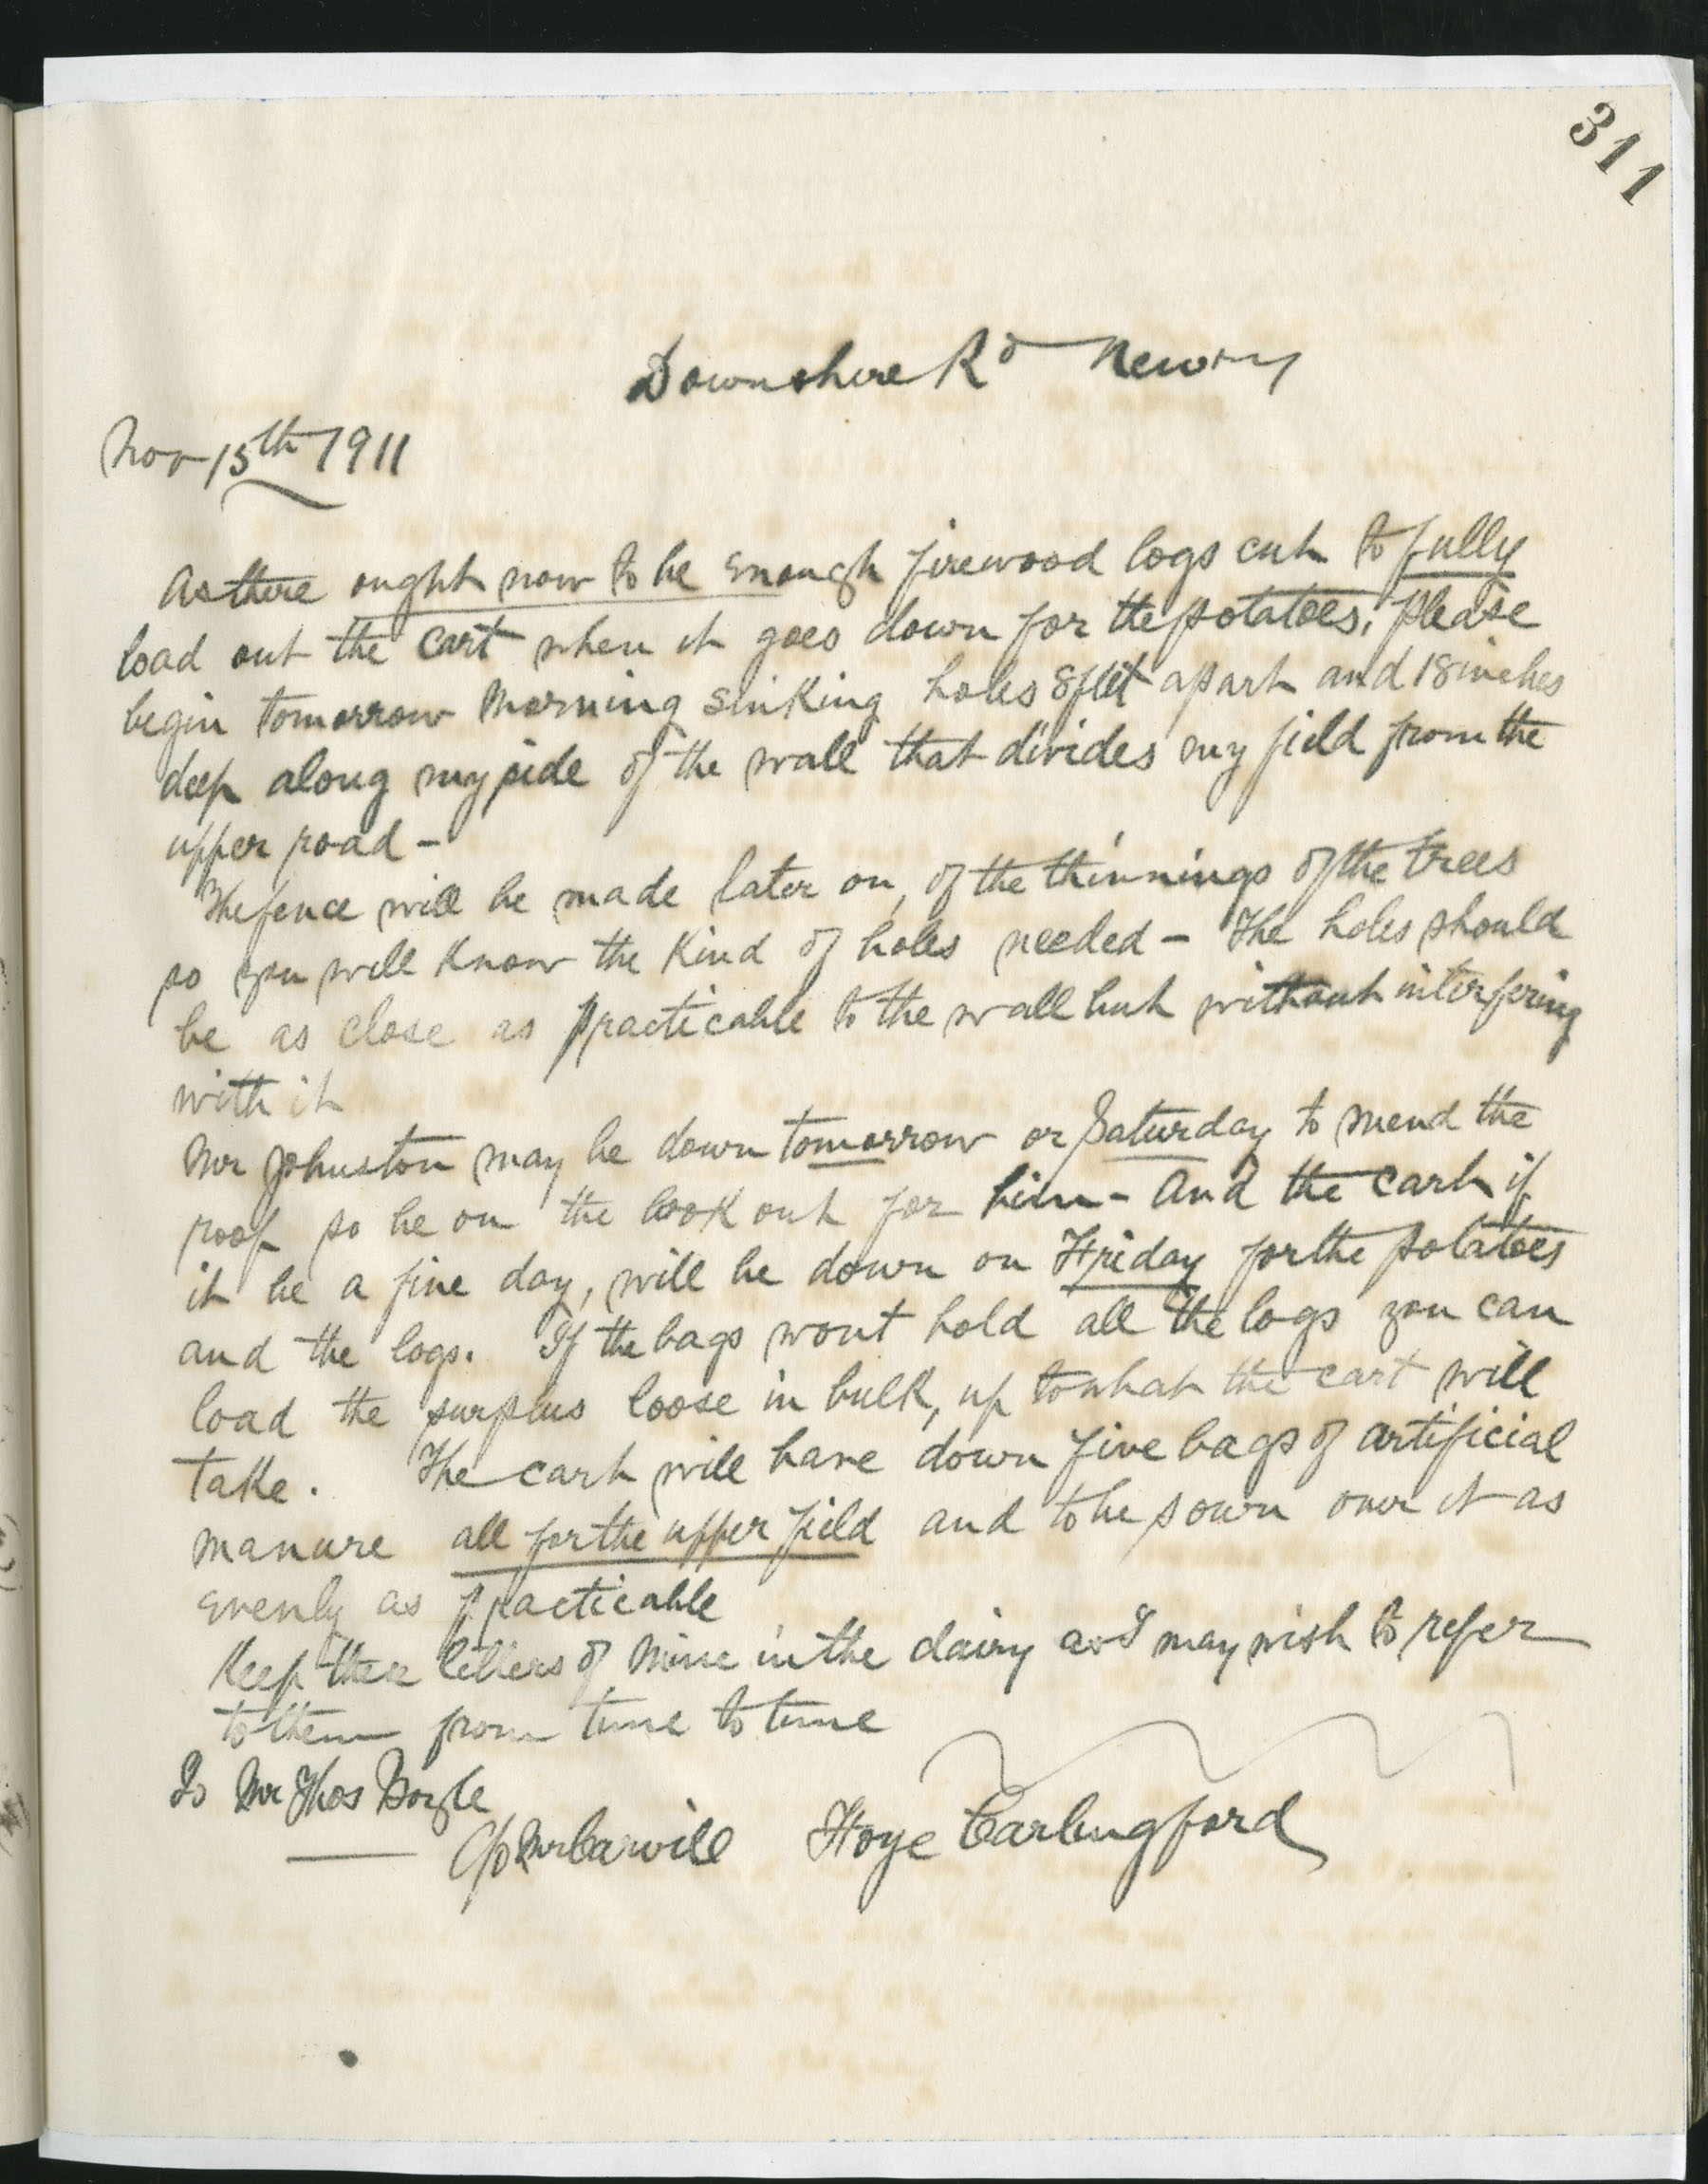 311
Downshire Rd Newry
Nov 15th 1911
As there ought now to be enough firewood logs cut to fully
load out the cart when it goes down for the potatoes, please
begin tomorrow morning sinking holes 8 feet apart and 18 inches
deep along my side of the wall that divides my field from the
upper road -
The fence will be made later on, of the thinnings of the trees
so you will know the kind of holes needed - The holes should
be as close as practicable to the wall but without interfering
with it
Mr Johnston may be down tomorrow or Saturday to mend the
roof so be on the look out for him - And the cart if
it be a fine day, will be down on Friday for the potatoes
and the logs. If the bags wont hold all the logs you can
load the surplus loose in bulk, up to what the cart will
take. The cart will have down five bags of artificial
manure all for the upper field and to be sown over it as
evenly as practicable
Keep these letters of mine in the dairy as I may wish to refer
to them from time to time
To Mr Thos Boyle
C/o Mr Carvill Carlingford